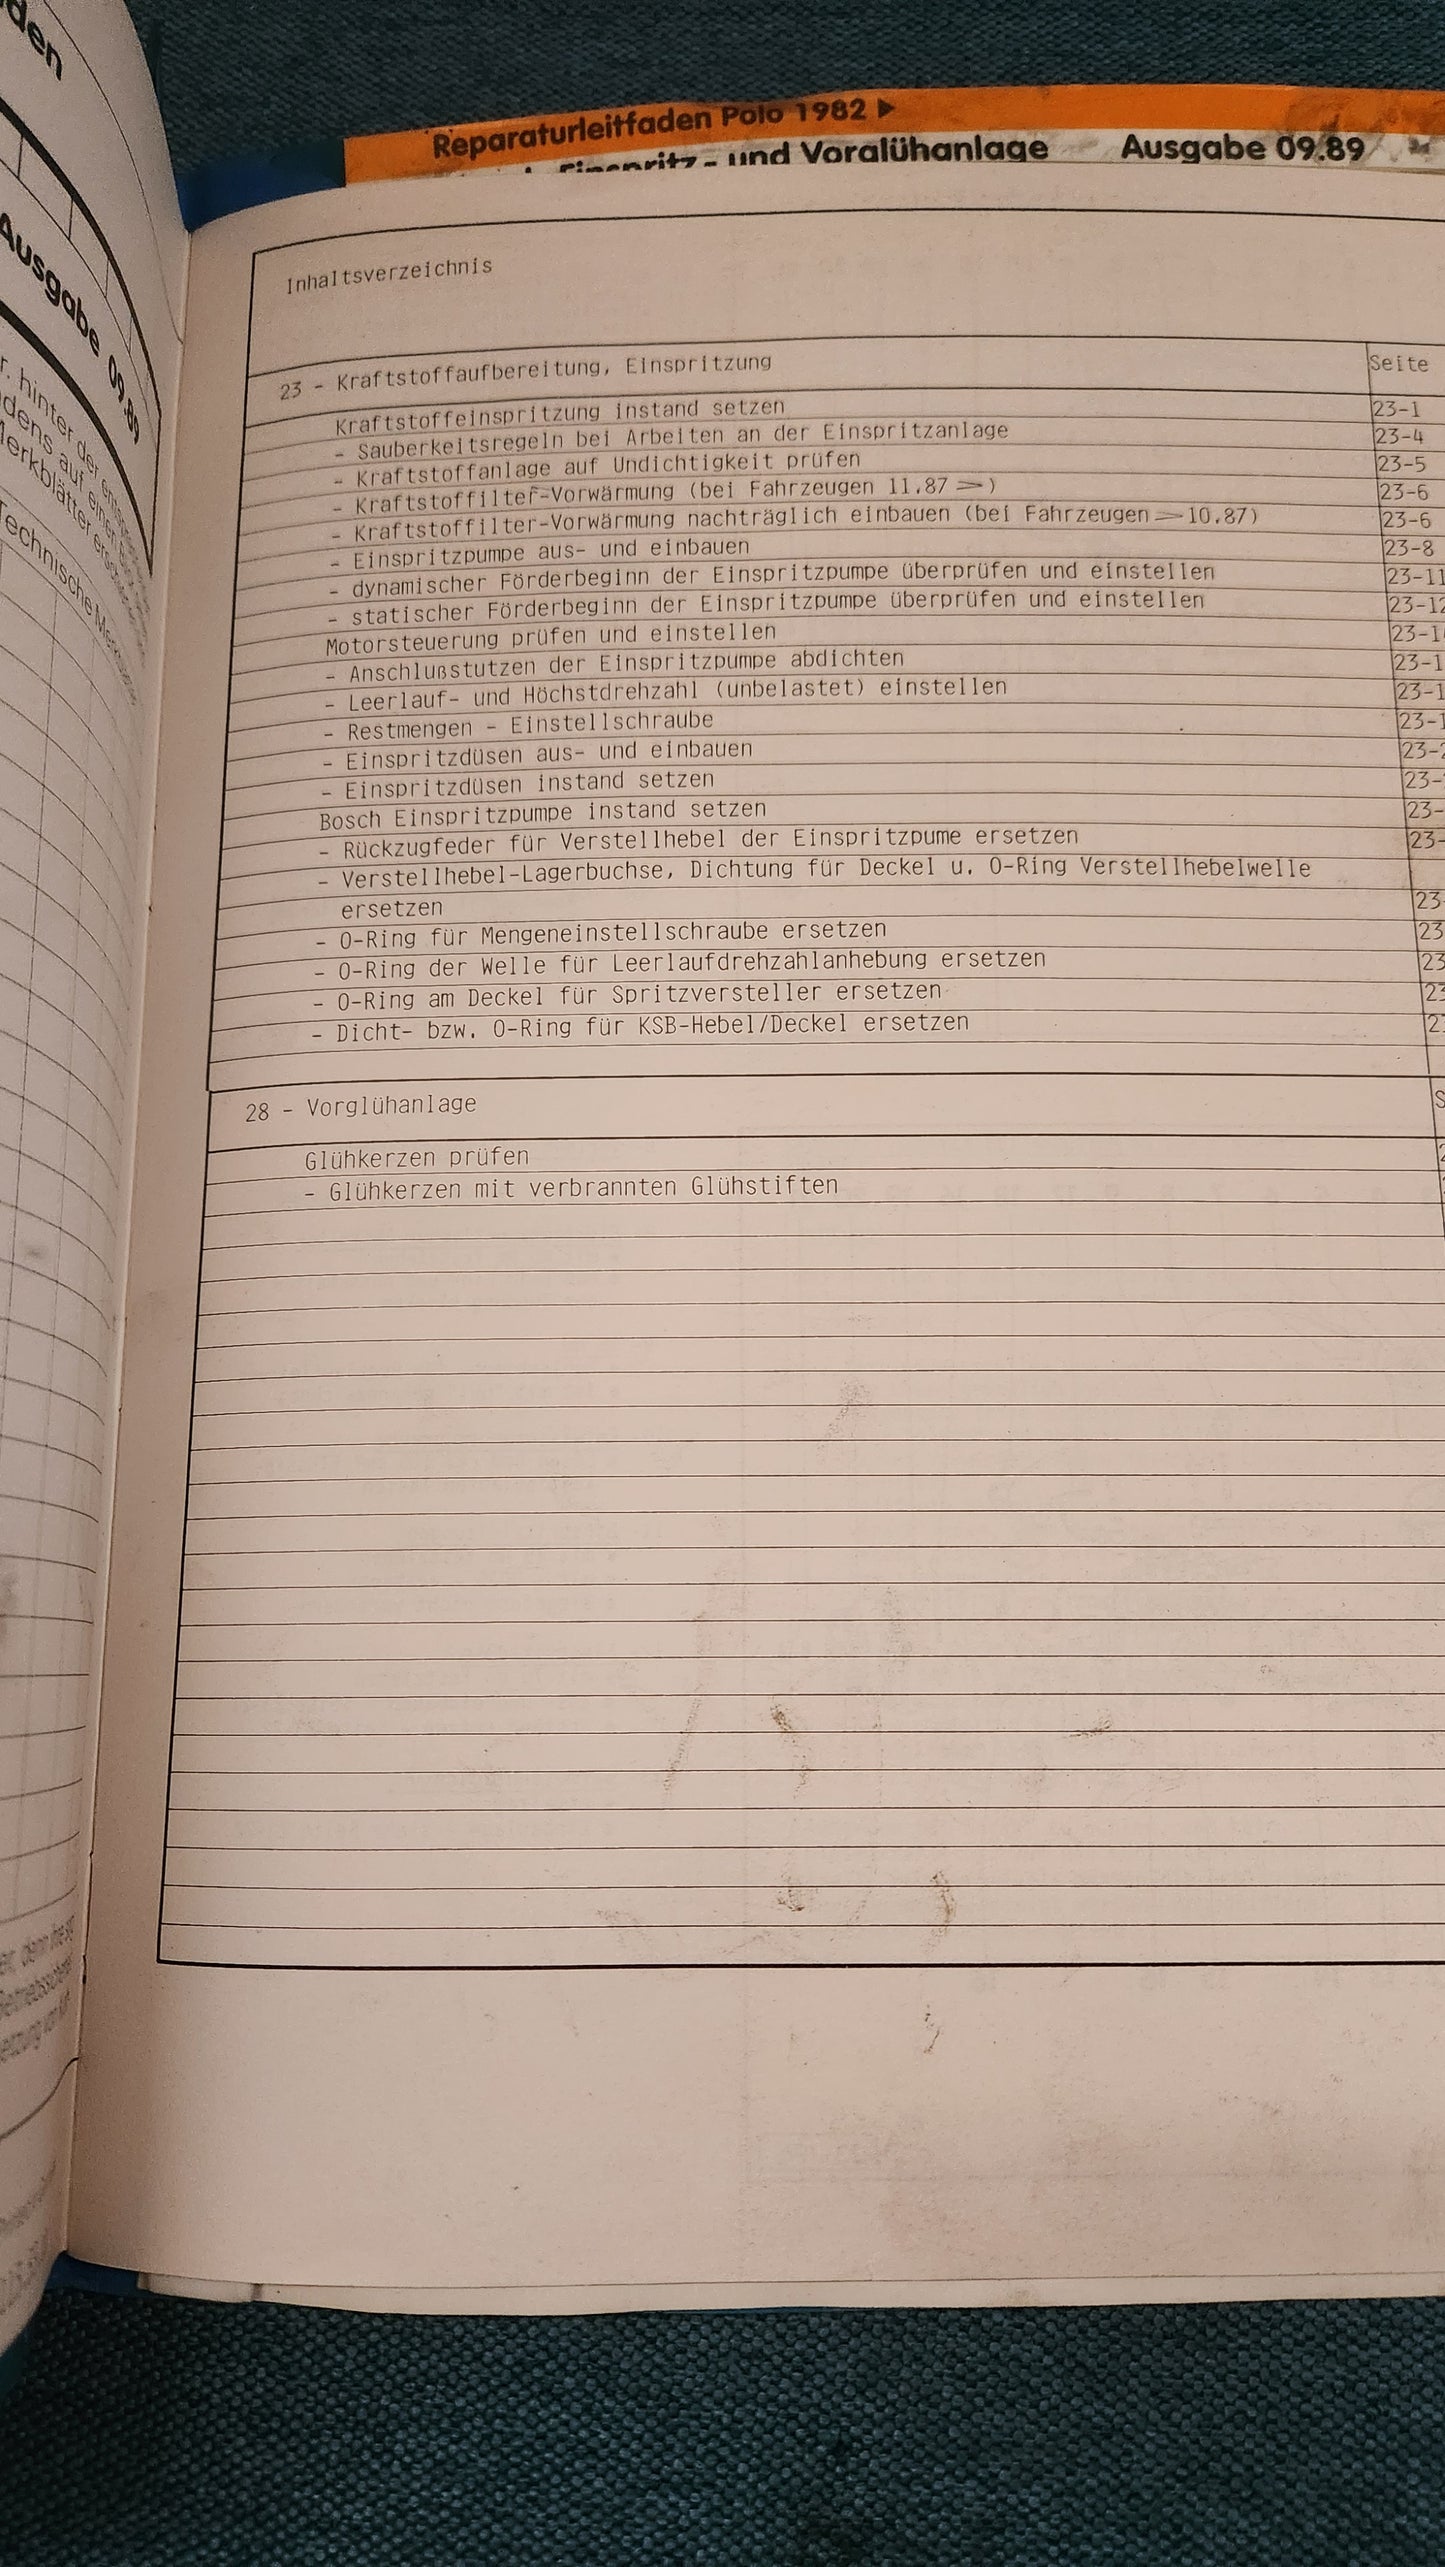 den
Ausgabe 09.89
r. hinter der
dens auf einen
Merkblätter
Technische
Reparaturleitfaden Polo 1982 ▶
Einspritz- und Vorglühanlage Ausgabe 09.89
Inhaltsverzeichnis
23 - Kraftstoffaufbereitung, Einspritzung Seite
Kraftstoffeinspritzung instand setzen 23-1
- Sauberkeitsregeln bei Arbeiten an der Einspritzanlage 23-4
- Kraftstoffanlage auf Undichtigkeit prüfen 23-5
- Kraftstoffilter-Vorwärmung (bei Fahrzeugen 11.87 ➤) 23-6
- Kraftstoffilter-Vorwärmung nachträglich einbauen (bei Fahrzeugen ➤ 10.87) 23-6
- Einspritzpumpe aus- und einbauen 23-8
- dynamischer Förderbeginn der Einspritzpumpe überprüfen und einstellen 23-11
- statischer Förderbeginn der Einspritzpumpe überprüfen und einstellen 23-12
Motorsteuerung prüfen und einstellen 23-1
- Anschlußstutzen der Einspritzpumpe abdichten 23-1
- Leerlauf- und Höchstdrehzahl (unbelastet) einstellen 23-1
- Restmengen - Einstellschraube 23-1
- Einspritzdüsen aus- und einbauen 23-2
- Einspritzdüsen instand setzen 23-
Bosch Einspritzpumpe instand setzen 23-
- Rückzugfeder für Verstellhebel der Einspritzpume ersetzen 23-
- Verstellhebel-Lagerbuchse, Dichtung für Deckel u. O-Ring Verstellhebelwelle
ersetzen 23-
- O-Ring für Mengeneinstellschraube ersetzen 23
- O-Ring der Welle für Leerlaufdrehzahlanhebung ersetzen 23
- O-Ring am Deckel für Spritzversteller ersetzen 23
- Dicht- bzw. O-Ring für KSB-Hebel/Deckel ersetzen 2
28 - Vorglühanlage S
Glühkerzen prüfen
- Glühkerzen mit verbrannten Glühstiften